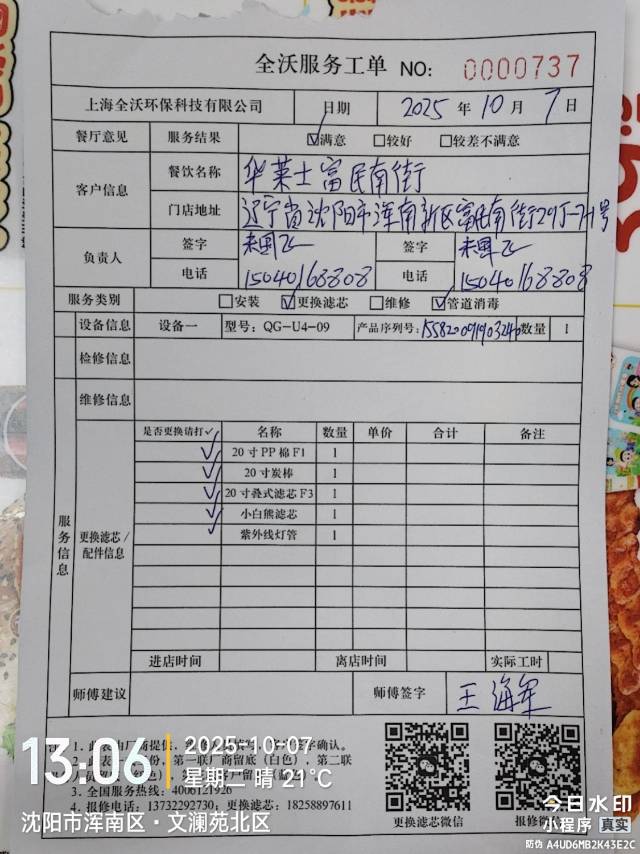 全沃服务工单 NO: 0000737
上海全沃环保科技有限公司 日期 2025 年 10 月 7 日
餐厅意见 服务结果 ☑满意 □较好 □较差不满意
客户信息 餐饮名称 华莱士富民南街
门店地址 辽宁省沈阳市浑南新区富民南街29号-7-1号
负责人 签字 签字
电话 15040168808 电话 15040168808
服务类别 □安装 ☑更换滤芯 □维修 ☑管道消毒
设备信息 设备一 型号: QG-U4-09 产品序列号: 数量 1
检修信息
维修信息
服务信息
更换滤芯/配件信息
是否更换请打✓ 名称 数量 单价 合计 备注
✓ 20寸PP棉F1 1
✓ 20寸炭棒 1
✓ 20寸叠式滤芯F3 1
✓ 小白熊滤芯 1
✓ 紫外线灯管 1
进店时间 离店时间 实际工时
师傅建议 师傅签字 王海军
13:06 2025-10-07
星期二 晴 21℃
沈阳市浑南区·文澜苑北区
3. 全国服务热线: 4006121926
4. 报修电话: 13732292730; 更换滤芯: 18258897611
更换滤芯微信 报修微信
今日水印
小程序 真实
防伪 A4UD6MB2K43E2C